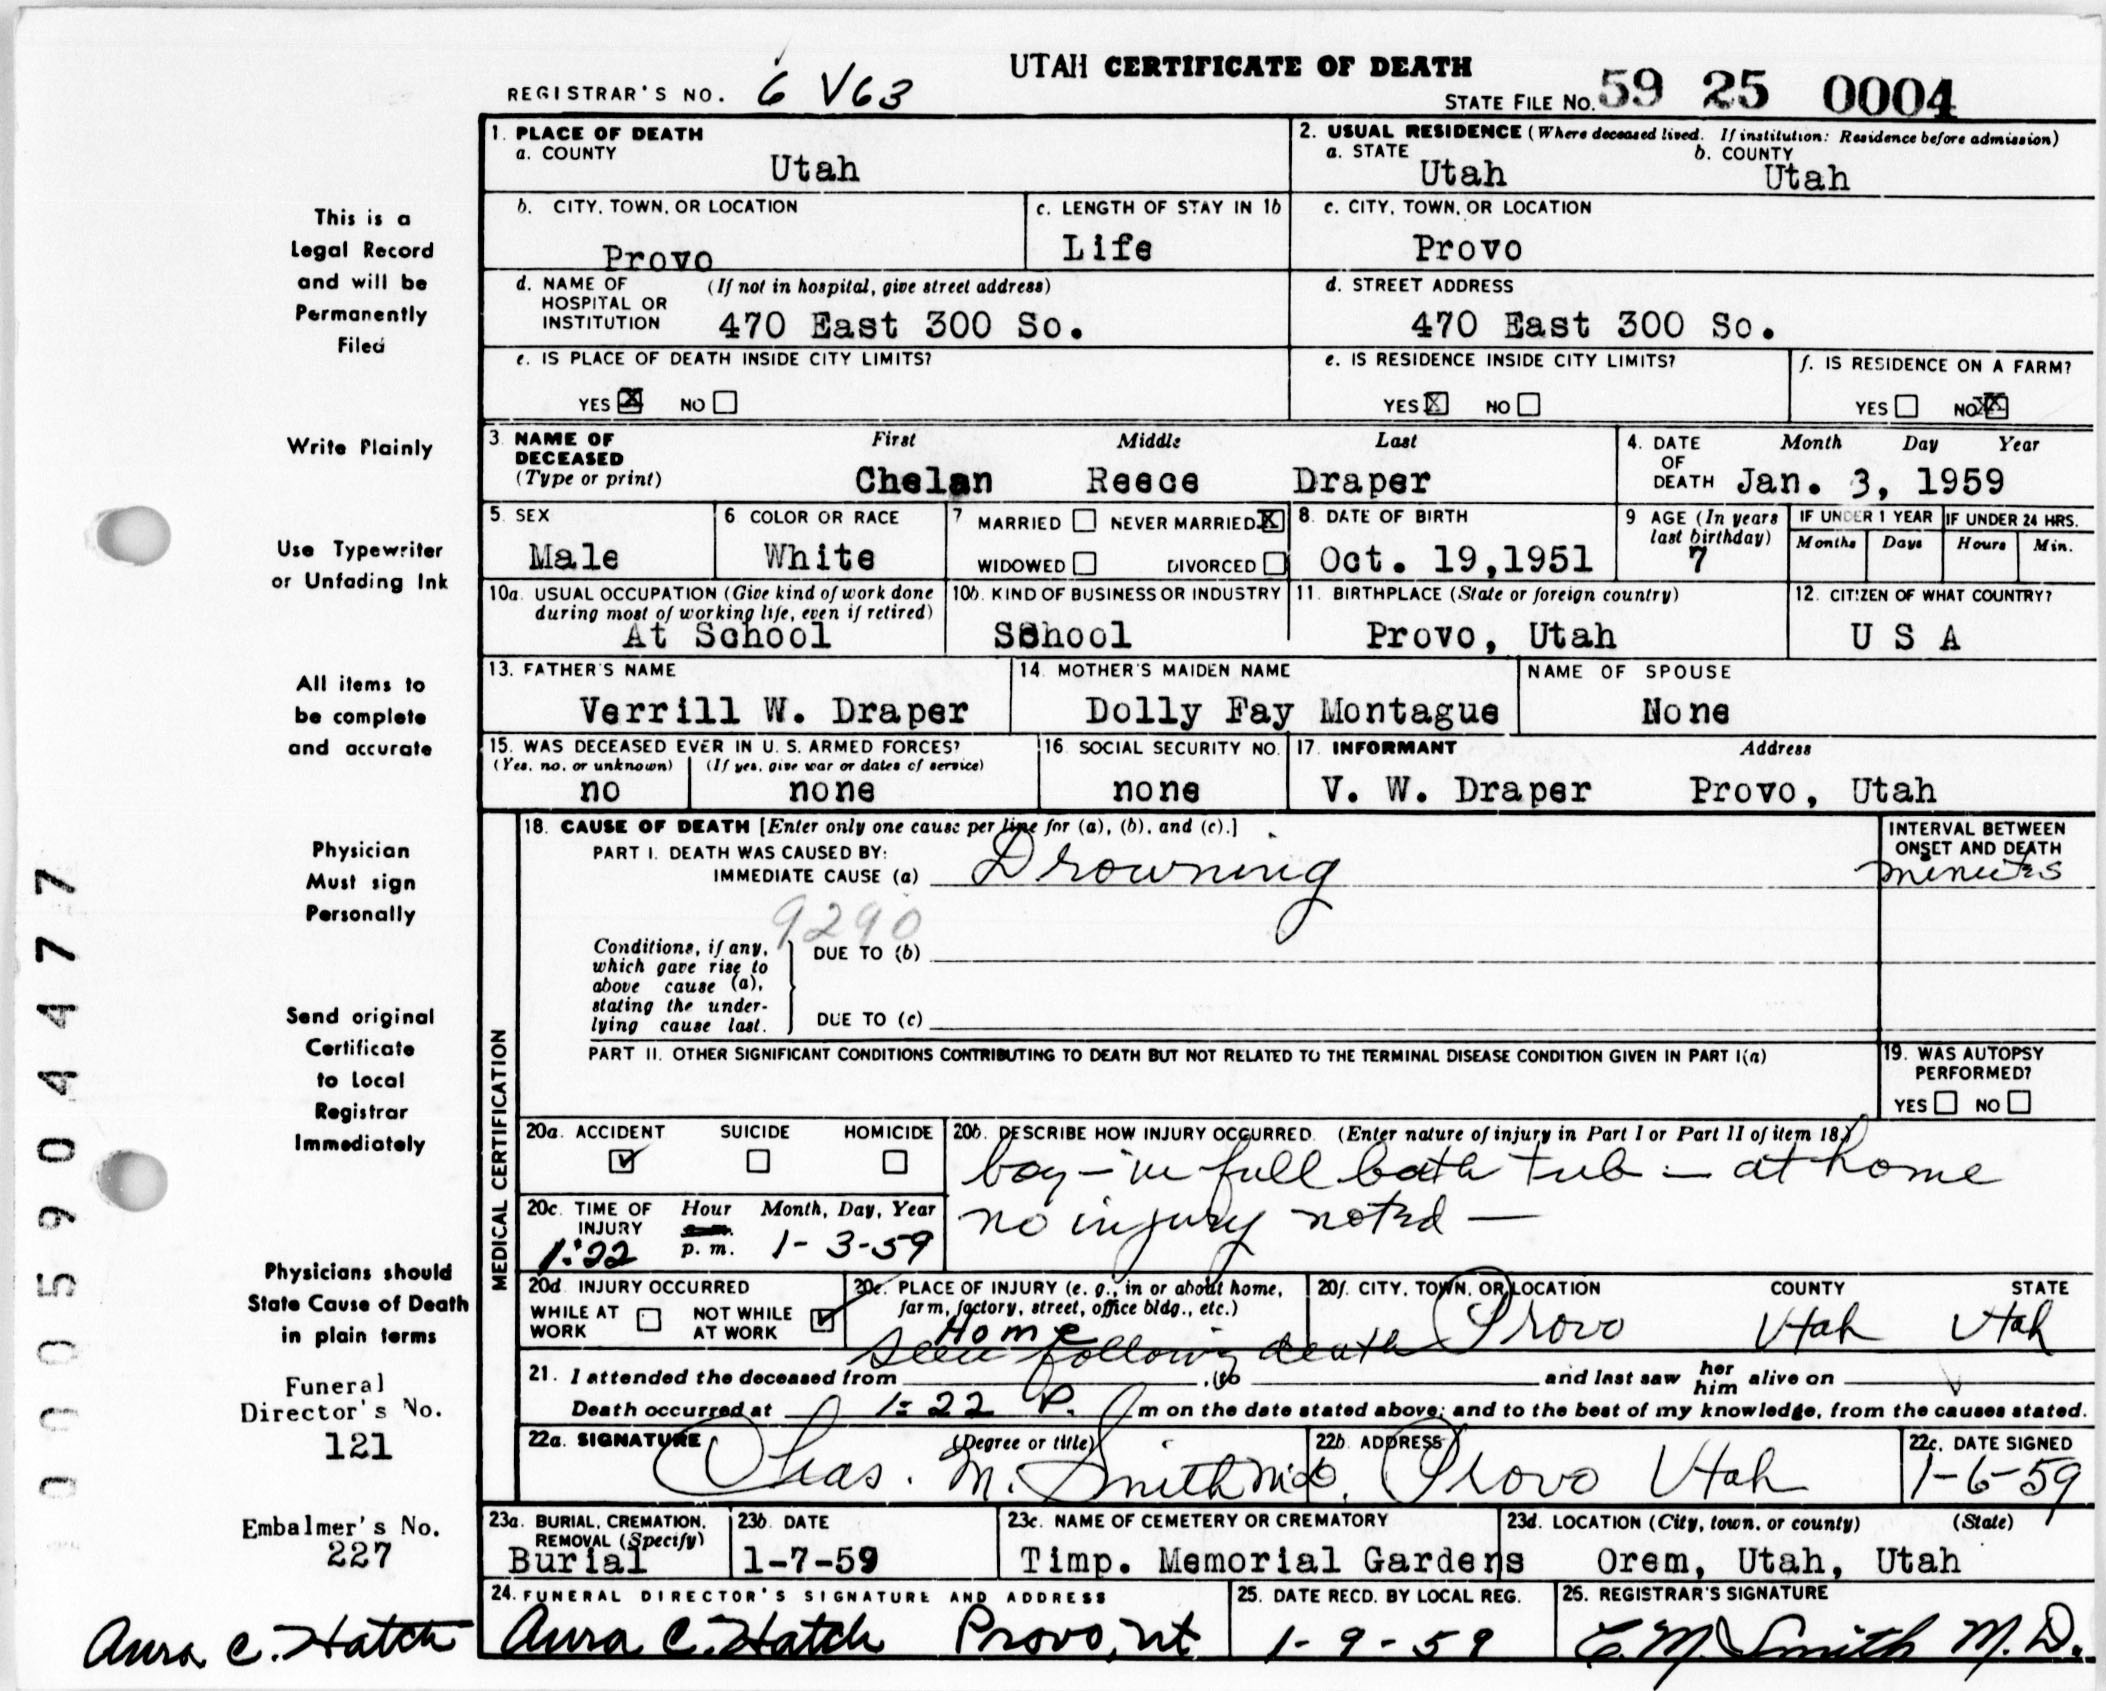 UTAH CERTIFICATE OF DEATH
REGISTRAR'S NO. 6 V63
STATE FILE NO. 59 25 0004
This is a
Legal Record
and will be
Permanently
Filed
Write Plainly
Use Typewriter
or Unfading Ink
All items to
be complete
and accurate
Physician
Must sign
Personally
Send original
Certificate
to Local
Registrar
Immediately
Physicians should
State Cause of Death
in plain terms
Funeral
Director's No.
121
Embalmer's No.
227
Aura C. Hatch
0005904477
1. PLACE OF DEATH
a. COUNTY
Utah
2. USUAL RESIDENCE (Where deceased lived. If institution: Residence before admission)
a. STATE b. COUNTY
Utah Utah
b. CITY, TOWN, OR LOCATION
Provo
c. LENGTH OF STAY IN 1b
Life
c. CITY, TOWN, OR LOCATION
Provo
d. NAME OF (If not in hospital, give street address)
HOSPITAL OR
INSTITUTION 470 East 300 So.
d. STREET ADDRESS
470 East 300 So.
e. IS PLACE OF DEATH INSIDE CITY LIMITS?
YES X NO
e. IS RESIDENCE INSIDE CITY LIMITS?
YES X NO
f. IS RESIDENCE ON A FARM?
YES NO XX
3. NAME OF First Middle Last
DECEASED
(Type or print) Chelan Reece Draper
4. DATE Month Day Year
OF
DEATH Jan. 3, 1959
5. SEX
Male
6 COLOR OR RACE
White
7 MARRIED NEVER MARRIED X
WIDOWED DIVORCED
8. DATE OF BIRTH
Oct. 19,1951
9 AGE (In years
last birthday)
7
IF UNDER 1 YEAR IF UNDER 24 HRS.
Months Days Hours Min.
10a. USUAL OCCUPATION (Give kind of work done
during most of working life, even if retired)
At School
10b. KIND OF BUSINESS OR INDUSTRY
School
11. BIRTHPLACE (State or foreign country)
Provo, Utah
12. CITIZEN OF WHAT COUNTRY?
U S A
13. FATHER'S NAME
Verrill W. Draper
14. MOTHER'S MAIDEN NAME
Dolly Fay Montague
NAME OF SPOUSE
None
15. WAS DECEASED EVER IN U. S. ARMED FORCES?
(Yes, no, or unknown) (If yes, give war or dates of service)
no none
16. SOCIAL SECURITY NO.
none
17. INFORMANT Address
V. W. Draper Provo, Utah
MEDICAL CERTIFICATION
18. CAUSE OF DEATH [Enter only one cause per line for (a), (b), and (c).]
PART I. DEATH WAS CAUSED BY:
IMMEDIATE CAUSE (a) Drowning
INTERVAL BETWEEN
ONSET AND DEATH
minutes
9290
Conditions, if any,
which gave rise to
above cause (a),
stating the under-
lying cause last.
DUE TO (b)
DUE TO (c)
PART II. OTHER SIGNIFICANT CONDITIONS CONTRIBUTING TO DEATH BUT NOT RELATED TO THE TERMINAL DISEASE CONDITION GIVEN IN PART I(a)
19. WAS AUTOPSY
PERFORMED?
YES NO
20a. ACCIDENT SUICIDE HOMICIDE
20b. DESCRIBE HOW INJURY OCCURRED. (Enter nature of injury in Part I or Part II of item 18.)
boy - in full bath tub - at home
no injury noted -
20c. TIME OF Hour Month, Day, Year
INJURY a.m.
1:22 p. m. 1-3-59
20d. INJURY OCCURRED
WHILE AT NOT WHILE
WORK AT WORK
20e. PLACE OF INJURY (e. g., in or about home,
farm, factory, street, office bldg., etc.)
Home
20f. CITY, TOWN, OR LOCATION COUNTY STATE
Provo Utah Utah
seen following death
21. I attended the deceased from , to and last saw her him alive on
Death occurred at 1:22 P. m on the date stated above; and to the best of my knowledge, from the causes stated.
22a. SIGNATURE (Degree or title)
Chas. M. Smith M.D.
22b. ADDRESS
Provo Utah
22c. DATE SIGNED
1-6-59
23a. BURIAL, CREMATION,
REMOVAL (Specify)
Burial
23b. DATE
1-7-59
23c. NAME OF CEMETERY OR CREMATORY
Timp. Memorial Gardens
23d. LOCATION (City, town, or county) (State)
Orem, Utah, Utah
24. FUNERAL DIRECTOR'S SIGNATURE AND ADDRESS
Aura C. Hatch Provo, Ut
25. DATE RECD. BY LOCAL REG.
1-9-59
25. REGISTRAR'S SIGNATURE
C. M. Smith M.D.